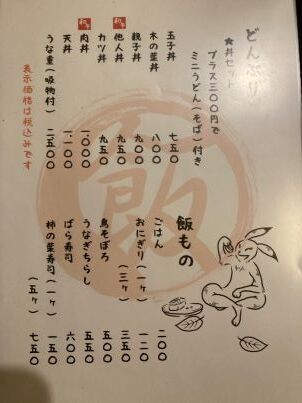 どんぶり
★丼セット
プラス三〇〇円で
ミニうどん(そば)付き
玉子丼 七五〇
木の葉丼 八〇〇
親子丼 九〇〇
和牛 他人丼 九五〇
カツ丼 九五〇
和牛 肉丼 一〇〇〇
天丼 一一〇〇
うな重(吸物付) 二五〇〇
表示価格は税込みです
飯
飯もの
ごはん 二〇〇
おにぎり(一ヶ) 一二〇
(三ヶ) 三五〇
鳥そぼろ 五〇〇
うなぎちらし 五五〇
ばら寿司 六〇〇
柿の葉寿司(一ヶ) 一五〇
(五ヶ) 七五〇